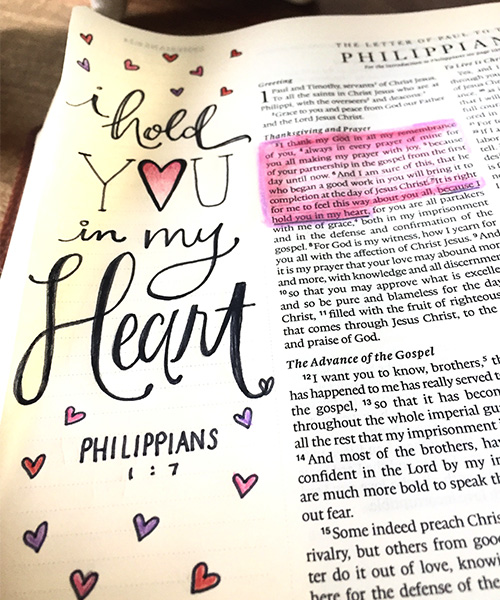 i hold
YOU
in my
Heart
PHILIPPIANS
1:7
THE LETTER OF PAUL TO
PHILIPPIAN
For the introduction to Philippians see
Greeting
1 Paul and Timothy, servants of Christ Jesus,
To all the saints in Christ Jesus who are at
Philippi, with the overseers and deacons:
2 Grace to you and peace from God our Father
and the Lord Jesus Christ.
Thanksgiving and Prayer
3 I thank my God in all my remembrance
of you, 4 always in every prayer of mine for
you all making my prayer with joy, 5 because
of your partnership in the gospel from the first
day until now. 6 And I am sure of this, that he
who began a good work in you will bring it to
completion at the day of Jesus Christ. 7 It is right
for me to feel this way about you all, because I
hold you in my heart, for you are all partakers
with me of grace, both in my imprisonment
and in the defense and confirmation of the
gospel. 8 For God is my witness, how I yearn for
you all with the affection of Christ Jesus. 9 And
it is my prayer that your love may abound more
and more, with knowledge and all discernment,
10 so that you may approve what is excellent,
and so be pure and blameless for the day
Christ, 11 filled with the fruit of righteous
that comes through Jesus Christ, to the
and praise of God.
The Advance of the Gospel
12 I want you to know, brothers, th
has happened to me has really served to
the gospel, 13 so that it has becom
throughout the whole imperial gu
all the rest that my imprisonment i
14 And most of the brothers, hav
confident in the Lord by my im
are much more bold to speak th
out fear.
15 Some indeed preach Chris
rivalry, but others from good
ter do it out of love, knowi
here for the defense of the